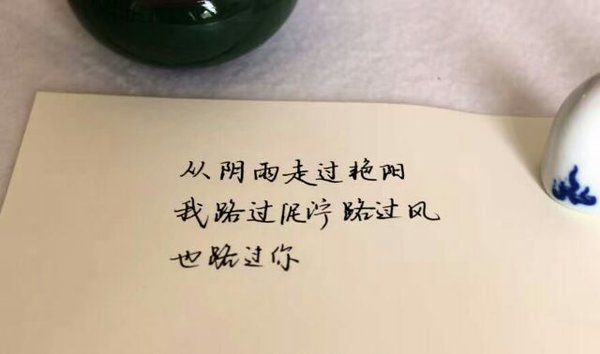 从阴雨走过艳阳
我路过泥泞路过风
也路过你